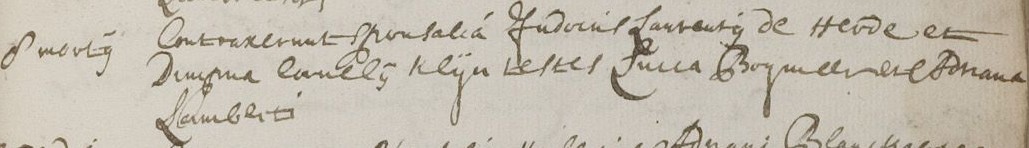 8 martij Contraxerunt sponsalia Judocus Laurentij de Herde et
Dimpna Cornelij Klijn testes Lucia Bogmeer et Adriana
Lamberti
Adriani